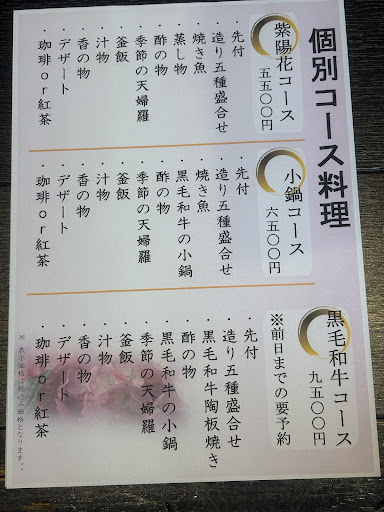 個別コース料理
紫陽花コース
五五〇〇円
・先付
・造り五種盛合せ
・焼き魚
・蒸し物
・酢の物
・季節の天婦羅
・釜飯
・汁物
・香の物
・デザート
・珈琲or紅茶
小鍋コース
六五〇〇円
・先付
・造り五種盛合せ
・焼き魚
・黒毛和牛の小鍋
・酢の物
・季節の天婦羅
・釜飯
・汁物
・香の物
・デザート
・珈琲or紅茶
黒毛和牛コース
九五〇〇円
※前日までの要予約
・先付
・造り五種盛合せ
・黒毛和牛陶板焼き
・酢の物
・黒毛和牛の小鍋
・季節の天婦羅
・釜飯
・汁物
・香の物
・デザート
・珈琲or紅茶
※表示価格は税込み価格となります。